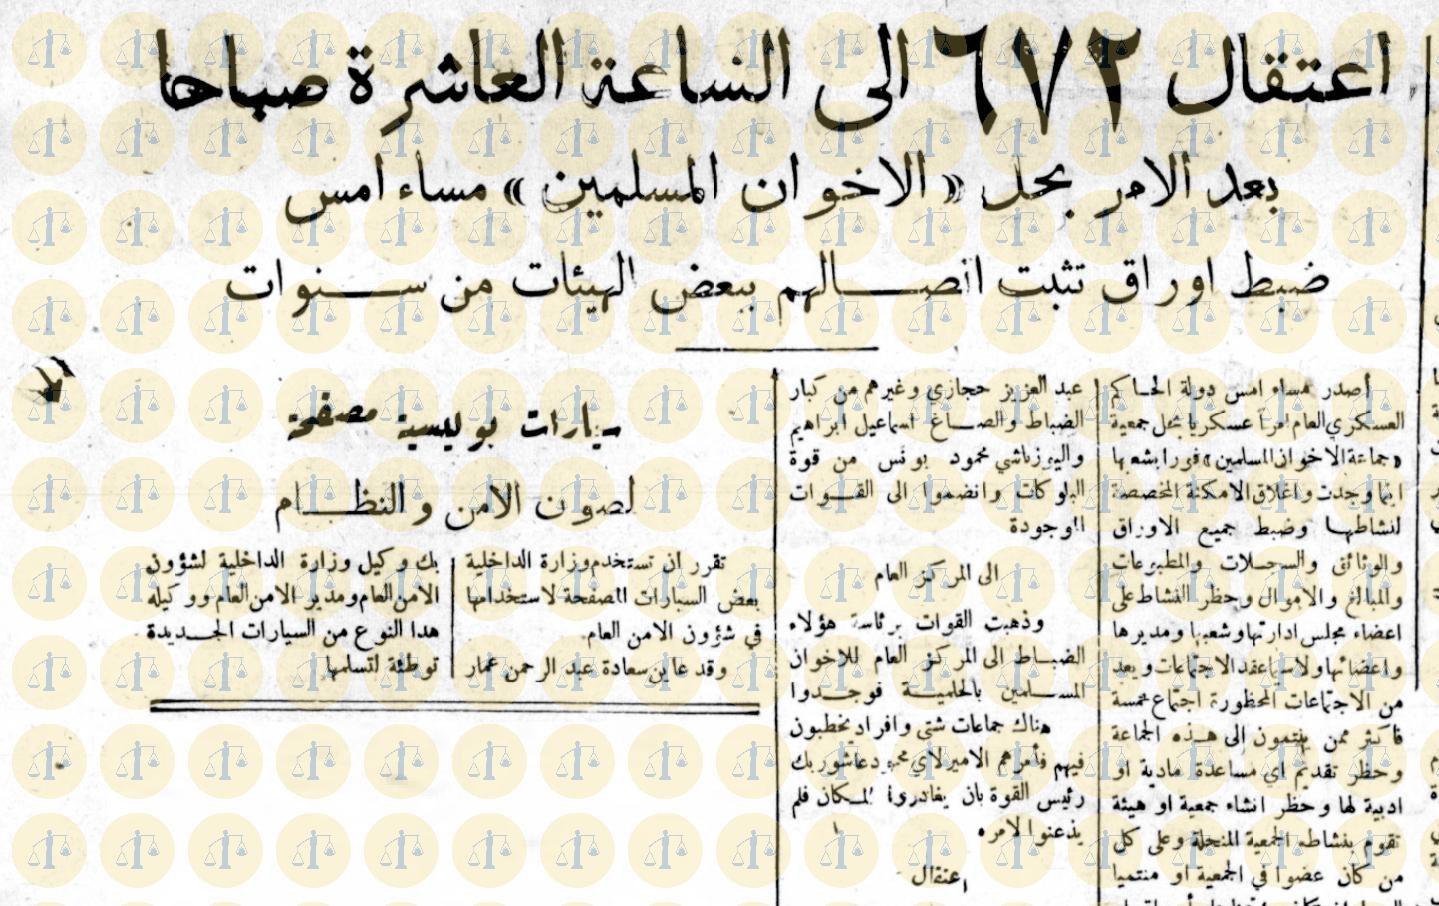 اعتقال ٦٧٢ الى الساعة العاشرة صباحا
بعد الامر بحل «الاخوان المسلمين» مساء امس
ضبط اوراق تثبت اتصالهم ببعض الهيئات من سنوات
أصدر مساء امس دولة الحاكم
العسكري العام امرا عسكريا بحل جمعية
«جماعة الاخوان المسلمين» فورا بشعبها
اينما وجدت واغلاق الامكنة المخصصة
لنشاطها وضبط جميع الاوراق
والوثائق والسجلات والمطبوعات
والمبالغ والاموال وحظر النشاط على
اعضاء مجلس ادارتها وشعبها ومديرها
واعضائها ولاسيما عقد الاجتماعات ويعد
من الاجتماعات المحظورة اجتماع خمسة
فاكثر ممن ينتمون إلى هذه الجماعة
وحظر تقديم اي مساعدة مادية او
ادبية لها وحظر انشاء جمعية او هيئة
تقوم بنشاط الجمعية المنحلة وعلى كل
من كان عضوا في الجمعية او منتميا
عبد العزيز حجازي وغيرهم من كبار
الضباط والصاغ اسماعيل ابراهيم
واليوزباشي محمود يونس من قوة
البلوكات وانضموا الى القوات
الموجودة
الى المركز العام
وذهبت القوات برئاسة هؤلاء
الضباط الى المركز العام للاخوان
المسلمين بالحلمية فوجدوا
هناك جماعات شتى وافراد يخطبون
فيهم فأمرهم الاميرلاي محمود عاشور بك
رئيس القوة بان يغادروا المكان فلم
يذعنوا لامره
اعتقال
سيارات بوليسية مصفحة
لصون الامن والنظام
تقرر ان تستخدم وزارة الداخلية
بعض السيارات المصفحة لاستخدامها
في شؤون الامن العام
وقد عاين سعادة عبد الرحمن عمار
بك وكيل وزارة الداخلية لشؤون
الامن العام ومدير الامن العام ووكيله
هذا النوع من السيارات الجديدة
توطئة لتسلمها